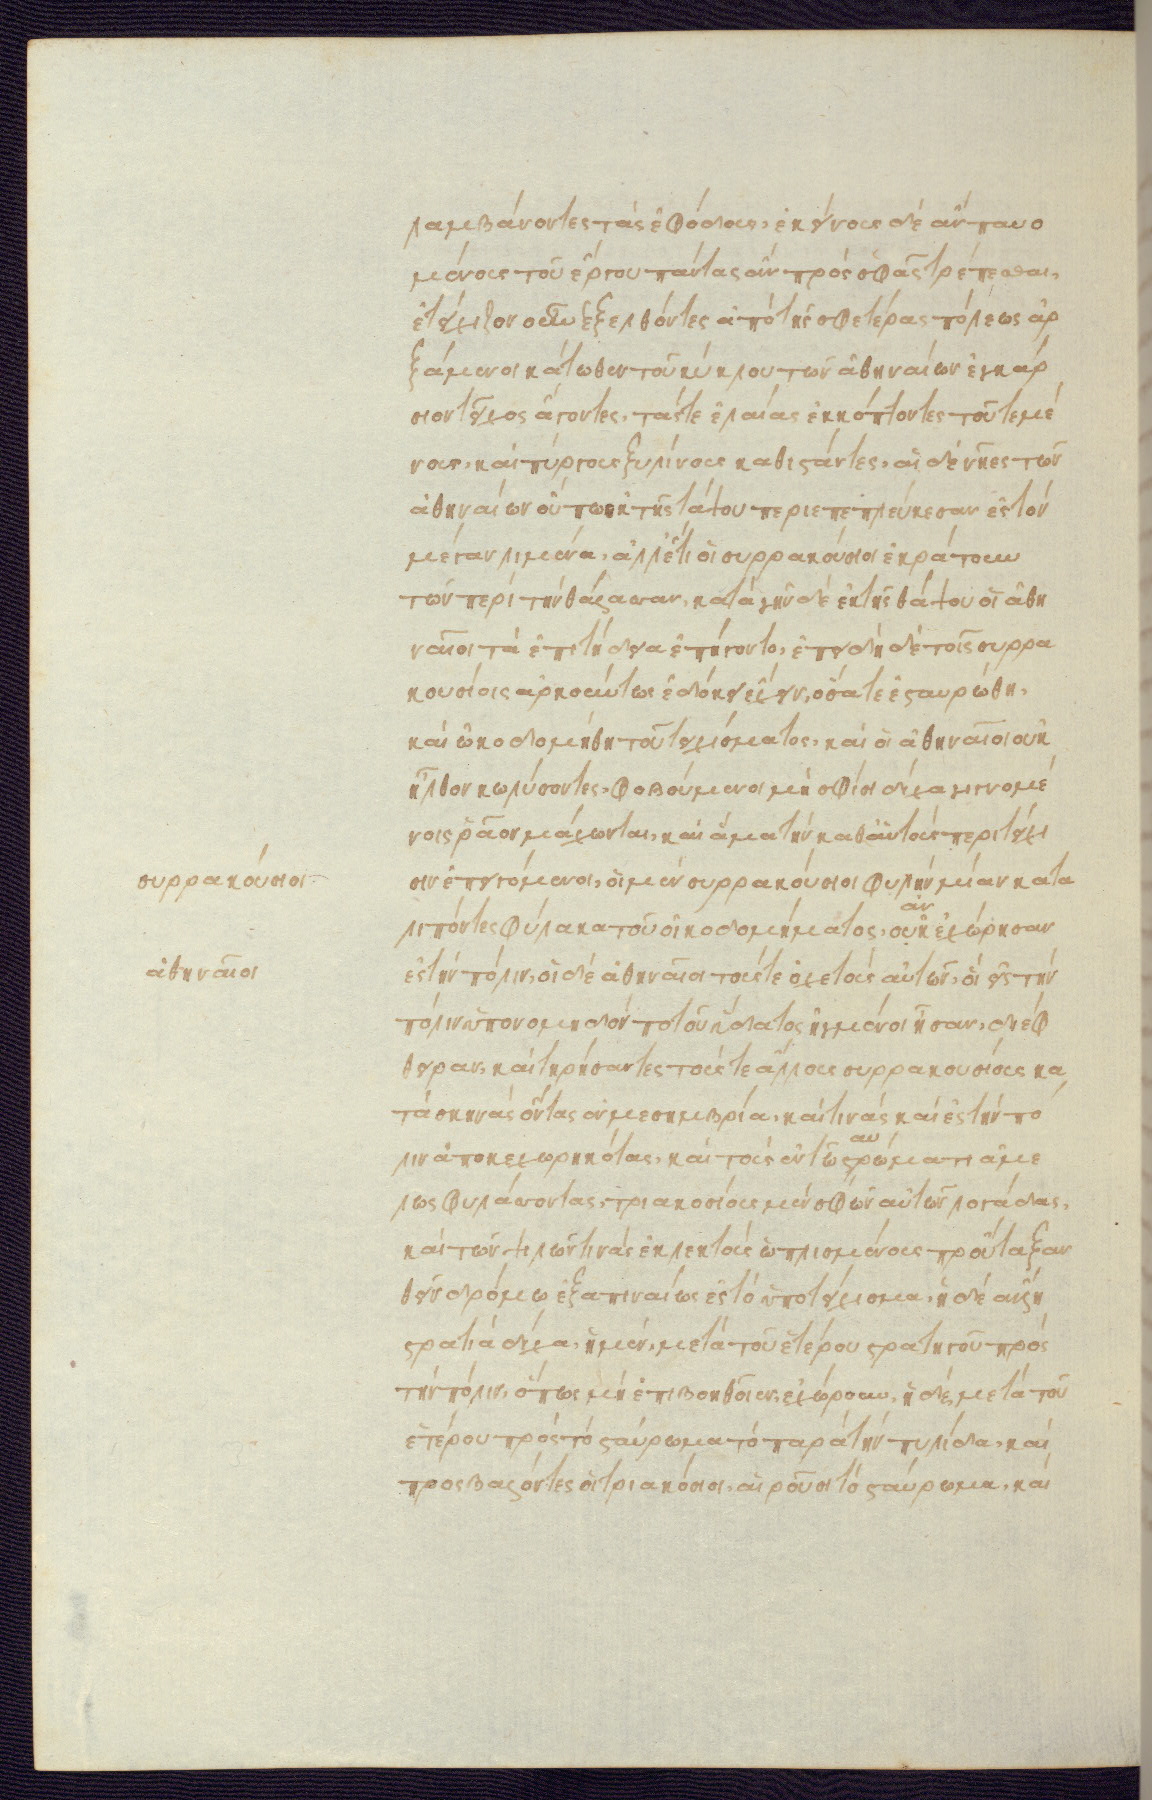 λαμβάνοντες τὰς ἐφόδους, ἐκείνους δὲ ἂν παυο
μένους τοῦ ἔργου πάντας ἂν πρὸς σφᾶς τρέπεσθαι,
ἐτείχιζον οὖν ἐξελθόντες ἀπὸ τῆς σφετέρας πόλεως ἀρ
ξάμενοι κάτωθεν τοῦ κύκλου τῶν ἀθηναίων ἐγκάρ
σιον τεῖχος ἄγοντες, τάς τε ἐλαίας ἐκκόπτοντες τοῦ τεμέ
νους, καὶ πύργους ξυλίνους καθιστάντες, αἱ δὲ νῆες τῶν
ἀθηναίων οὔπω ἐκ τῆς τάψου περιεπεπλεύκεσαν ἐς τὸν
μέγαν λιμένα, ἀλλ' ἔτι οἱ συρρακούσιοι ἐκράτουν
τῶν περὶ τὴν θάλασσαν, κατὰ γῆν δὲ ἐκ τῆς θάψου οἱ ἀθη
ναῖοι τὰ ἐπιτήδεια ἐπήγοντο, ἐπειδὴ δὲ τοῖς συρρα
κουσίοις ἀρκούντως ἐδόκει ἔχειν, ὅσα τε ἐσταυρώθη,
καὶ ὠκοδομήθη τοῦ τειχίσματος, καὶ οἱ ἀθηναῖοι οὐκ
ἦλθον κωλύσοντες, φοβούμενοι μὴ σφίσι δίχα γιγνομέ
νοις ῥᾷον μάχωνται, καὶ ἅμα τὴν καθ' αὑτοὺς περιτείχι
συρρακούσιοι
σιν ἐπειγόμενοι, οἱ μὲν συρρακούσιοι φυλὴν μίαν κατα
λιπόντες φύλακα τοῦ οἰκοδομήματος, οὐκ ἐχώρησαν
αν
ἀθηναῖοι
ἐς τὴν πόλιν, οἱ δὲ ἀθηναῖοι τούς τε ὀχετοὺς αὐτῶν, οἳ εἰς τὴν
πόλιν ὑπονομηδὸν ποτοῦ ὕδατος ἠγμένοι ἦσαν, διέφ
θειραν, καὶ τηρήσαντες τούς τε ἄλλους συρρακουσίους κα
τὰ σκηνὰς ὄντας ἐν μεσημβρίᾳ, καί τινας καὶ ἐς τὴν πό
λιν ἀποκεχωρηκότας, καὶ τοὺς ἐν τῷ στρώματι ἀμε
αυ
λῶς φυλάσσοντας, τριακοσίους μὲν σφῶν αὐτῶν λογάδας,
καὶ τῶν ψιλῶν τινὰς ἐκλεκτοὺς ὡπλισμένους προὔταξαν
θεῖν δρόμῳ ἐξαπιναίως ἐς τὸ ὑποτείχισμα, ἡ δὲ ἄλλη
στρατιὰ δίχα, ἡ μὲν, μετὰ τοῦ ἑτέρου στρατηγοῦ πρὸς
τὴν πόλιν, ὅπως μὴ ἐπιβοηθοῖεν, ἐχώρουν, ἡ δὲ, μετὰ τοῦ
ἑτέρου πρὸς τὸ σταύρωμα τὸ παρὰ τὴν πυλίδα, καὶ
προσβαλόντες οἱ τριακόσιοι, αἱροῦσι τὸ σταύρωμα, καὶ